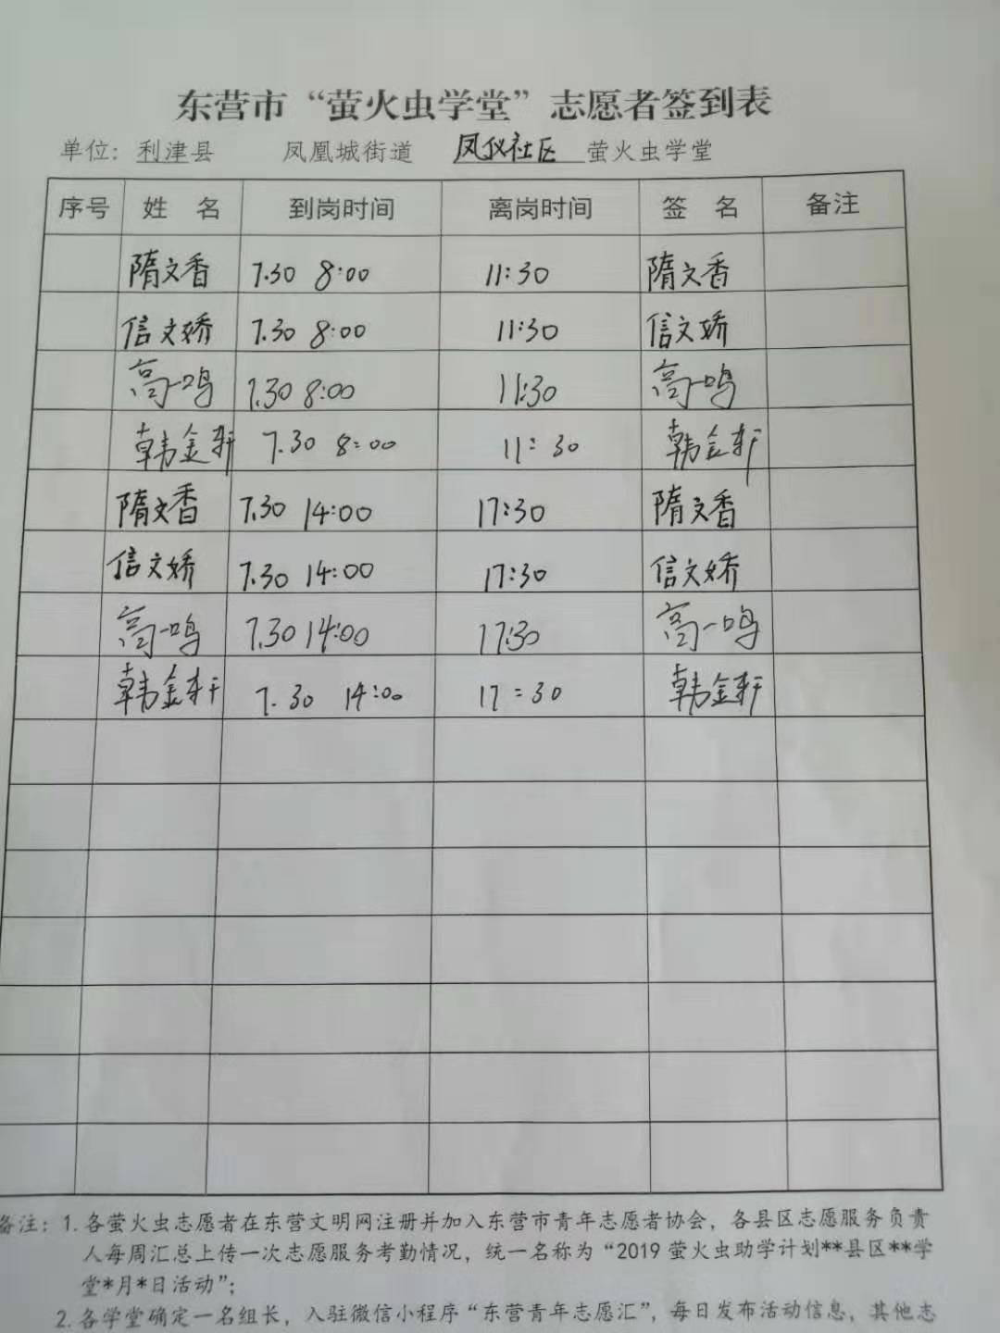 东营市“萤火虫学堂”志愿者签到表
单位：利津县 凤凰城街道 凤仪社区 萤火虫学堂
序号 姓 名 到岗时间 离岗时间 签 名 备注
隋文香 7.30 8:00 11:30 隋文香
信文娇 7.30 8:00 11:30 信文娇
高一鸣 7.30 8:00 11:30 高一鸣
韩金轩 7.30 8:00 11:30 韩金轩
隋文香 7.30 14:00 17:30 隋文香
信文娇 7.30 14:00 17:30 信文娇
高一鸣 7.30 14:00 17:30 高一鸣
韩金轩 7.30 14:00 17:30 韩金轩
备注：1.各萤火虫志愿者在东营文明网注册并加入东营市青年志愿者协会，各县区志愿服务负责
人每周汇总上传一次志愿服务考勤情况，统一名称为“2019萤火虫助学计划**县区**学
堂*月*日活动”；
2.各学堂确定一名组长，入驻微信小程序“东营青年志愿汇”，每日发布活动信息，其他志